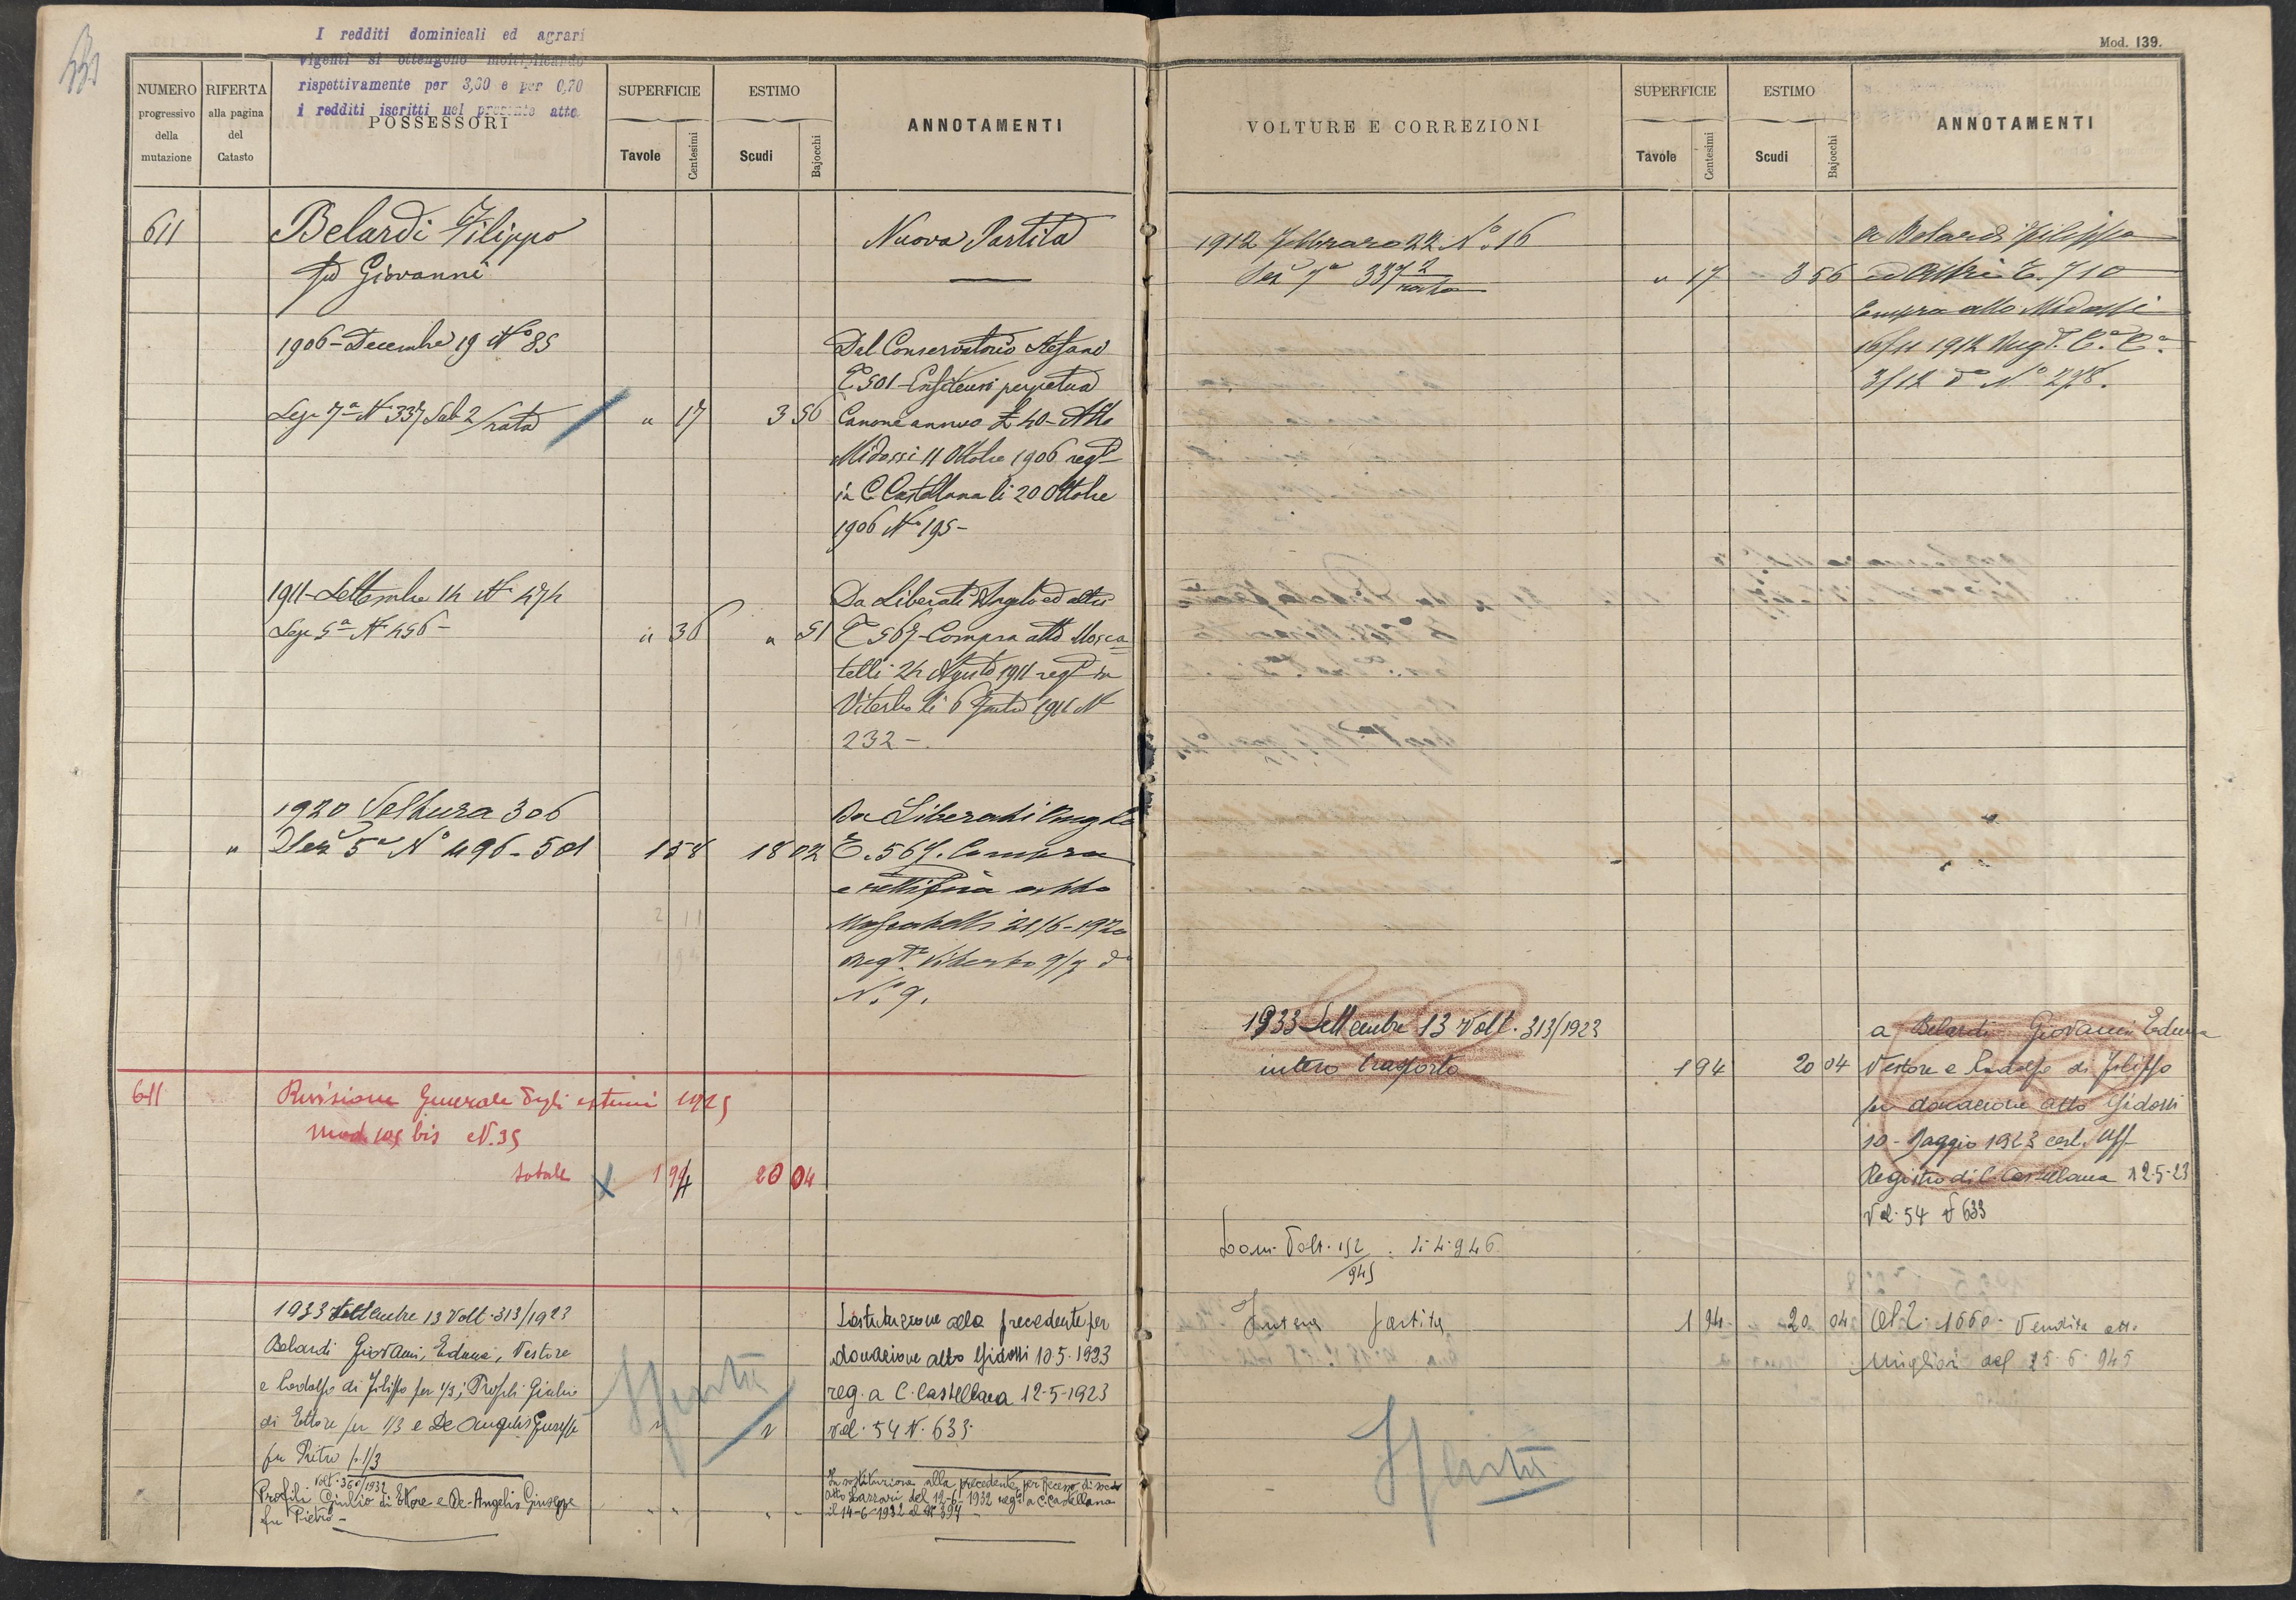 I redditi dominicali ed agrari
vigenti si ottengono moltiplicando
rispettivamente per 3,60 e per 0,70
i redditi iscritti nel presente atto
NUMERO
progressivo
della
mutazione
RIFERTA
alla pagina
del
Catasto
POSSESSORI
SUPERFICIE
Tavole
Centesimi
ESTIMO
Scudi
Bajocchi
ANNOTAMENTI
611
Belardi Filippo
fu Giovanni
Nuova Partita
1906 - Decembre 19 N° 85
Sez 7a N 337 Sub 2/rata
" 17
3 56
Dal Conservatorio
T 501 - Enfiteusi perpetua
Canone annuo £ 40 - Atto
Midossi 11 Ottobre 1906 regto
in C. Castellana li 20 Ottobre
1906 N° 195 -
1911 - Settembre 14 N° 474
Sez 5a N 456 -
" 36
" 51
Da Liberati Angelo ed altri
T 567 - Compra atto Mosca=
telli 24 Agosto 1911 regto in
Viterbo li 6 1911 N
232 -
1920 Voltura 306
" Sez 5a N° 496 - 501
1 58
18 02
Da Liberati Angelo
T. 567. Compra
e rettifica atto
Moscatelli 21/6 - 1920
Regto Viterbo 9/7 do
N° 9.
611
Revisione Generale degli estimi 1925
Mod. 105 bis N. 35
totale
1 94
20 04
1933 Settembre 13 Volt. 313/1923
Belardi Giovanni, Edmea, Nestore
e Rodolfo di Filippo per 1/3; Profili Giulio
di Ettore per 1/3 e De Angelis Giuseppe
fu Pietro p. 1/3
Volt. 360/1932
Profili Giulio di Ettore e De-Angelis Giuseppe
fu Pietro -
Spartita
Sostituzione alla precedente per
donazione atto Midossi 10.5.1923
reg. a C. Castellana 12-5-1923
vol. 54 N. 633.
In sostituzione alla precedente per Recesso di socio
atto Lazzari del 12-6-1932 regto a C. Castellana
il 14-6-1932 al N° 394 -
Mod. 139.
VOLTURE E CORREZIONI
SUPERFICIE
Tavole
Centesimi
ESTIMO
Scudi
Bajocchi
ANNOTAMENTI
1912 Febbraro 22 N° 16
Sez 7a 337 2/rata
" 17
3 56
a Belardi Filippo
ed Altri T. 710
Compra atto Midossi
16/11 1912 Regto C. Ca
3/12 do N° 278.
1933 Settembre 13 Volt. 313/1923
intero trasporto
1 94
20 04
a Belardi Giovanni Edmea
Nestore e Rodolfo di Filippo
per donazione atto Midossi
10 - Maggio 1923 Uff
Registro di C. Castellana 12-5-23
Vol. 54 N 633
Dom. Volt. 152/945 4-4-946
Intera partita
1 94
20 04
Al T. 1660 - Vendita att.
Migliori del 25.6.945
Spartita